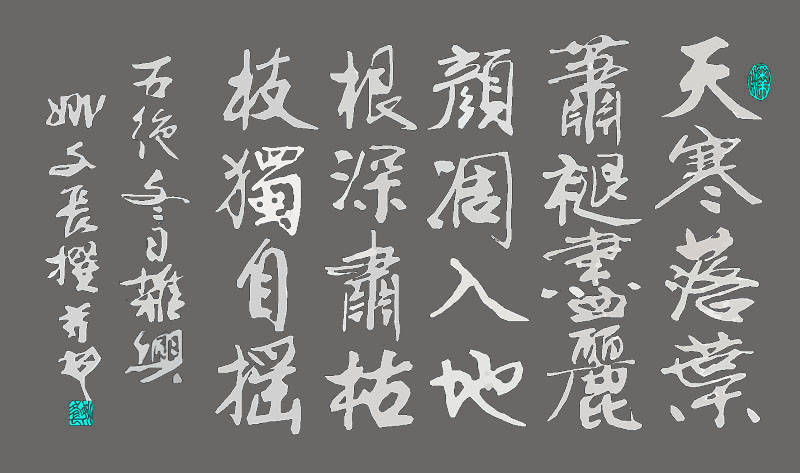 天寒落葉
蕭褪盡麗
顏凋入地
根深肅枯
枝獨自搖
五絕冬日雜興
姚文長撰并书